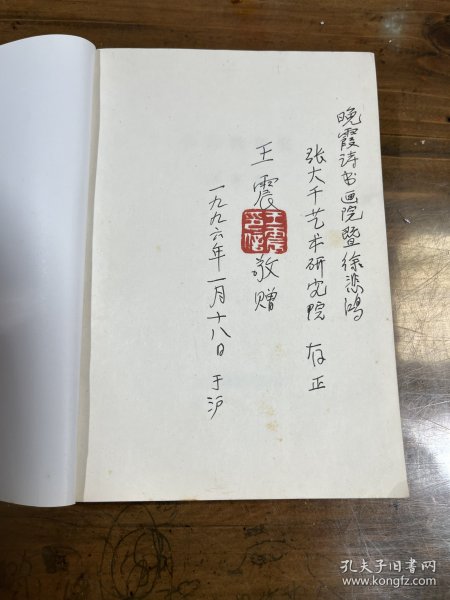 晚霞诗书画院暨徐悲鸿
张大千艺术研究院 存正
王震敬赠
王震印信
一九九六年一月十八日 于沪
孔夫子旧书网
www.kongfz.com